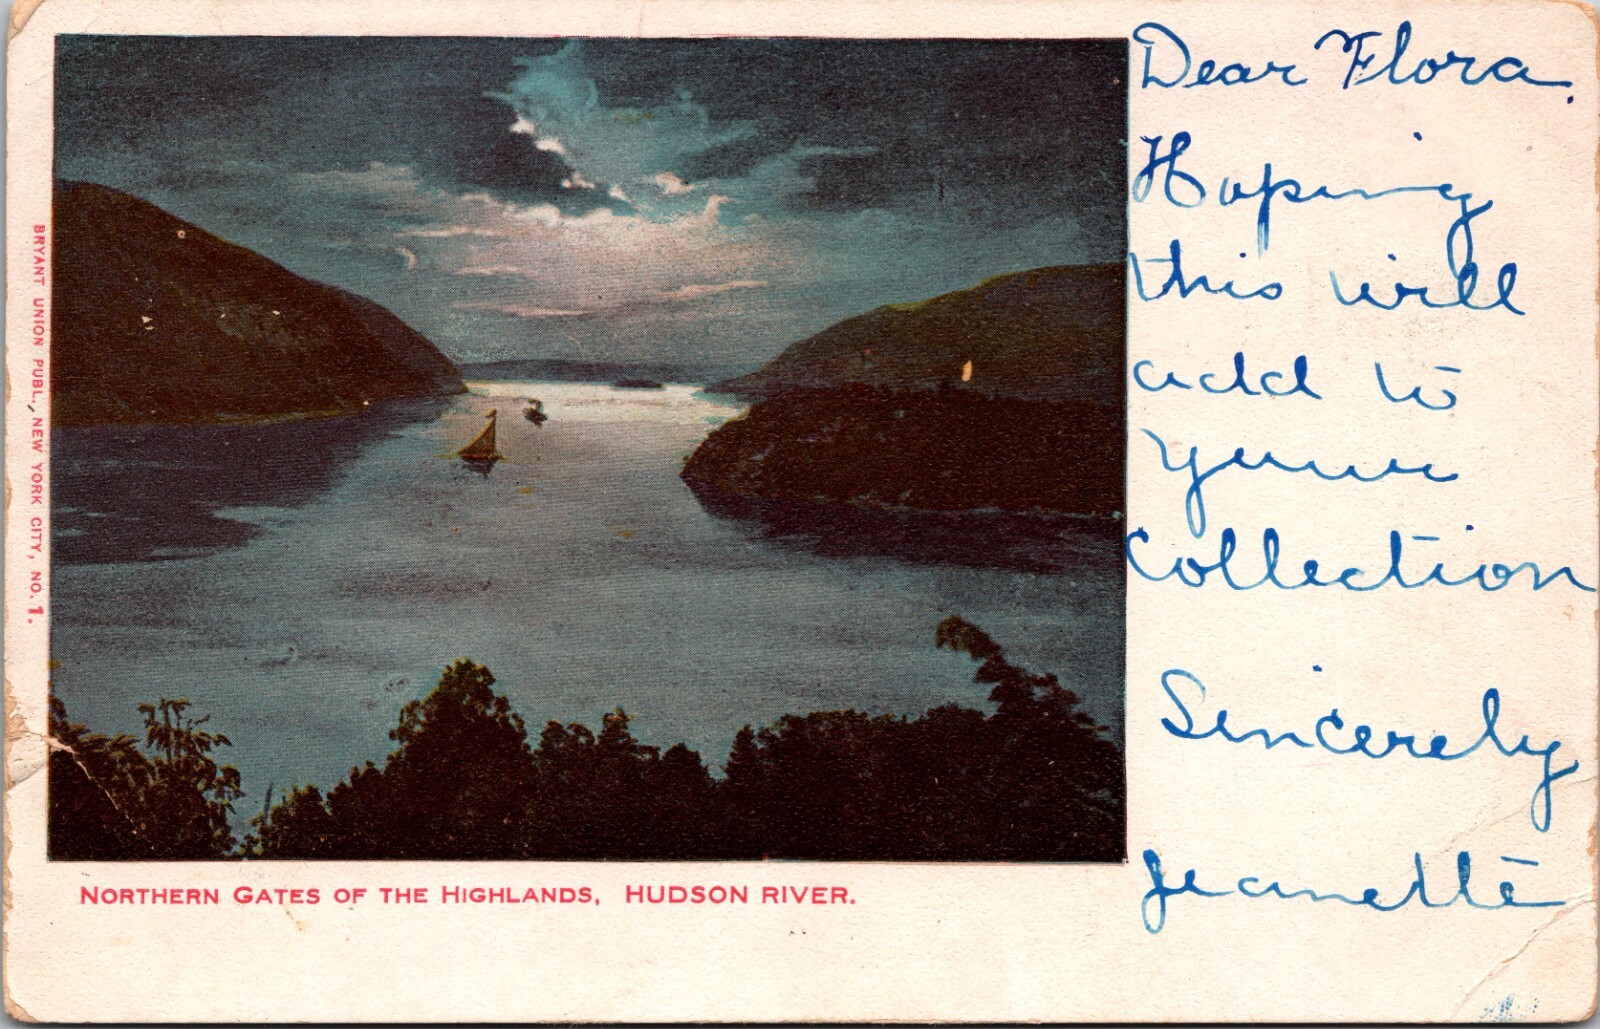 Dear Flora,
Hoping
this will
add to
your
collection
Sincerely
Jeanette
BRYANT UNION PUBL., NEW YORK CITY, NO. 1.
NORTHERN GATES OF THE HIGHLANDS, HUDSON RIVER.